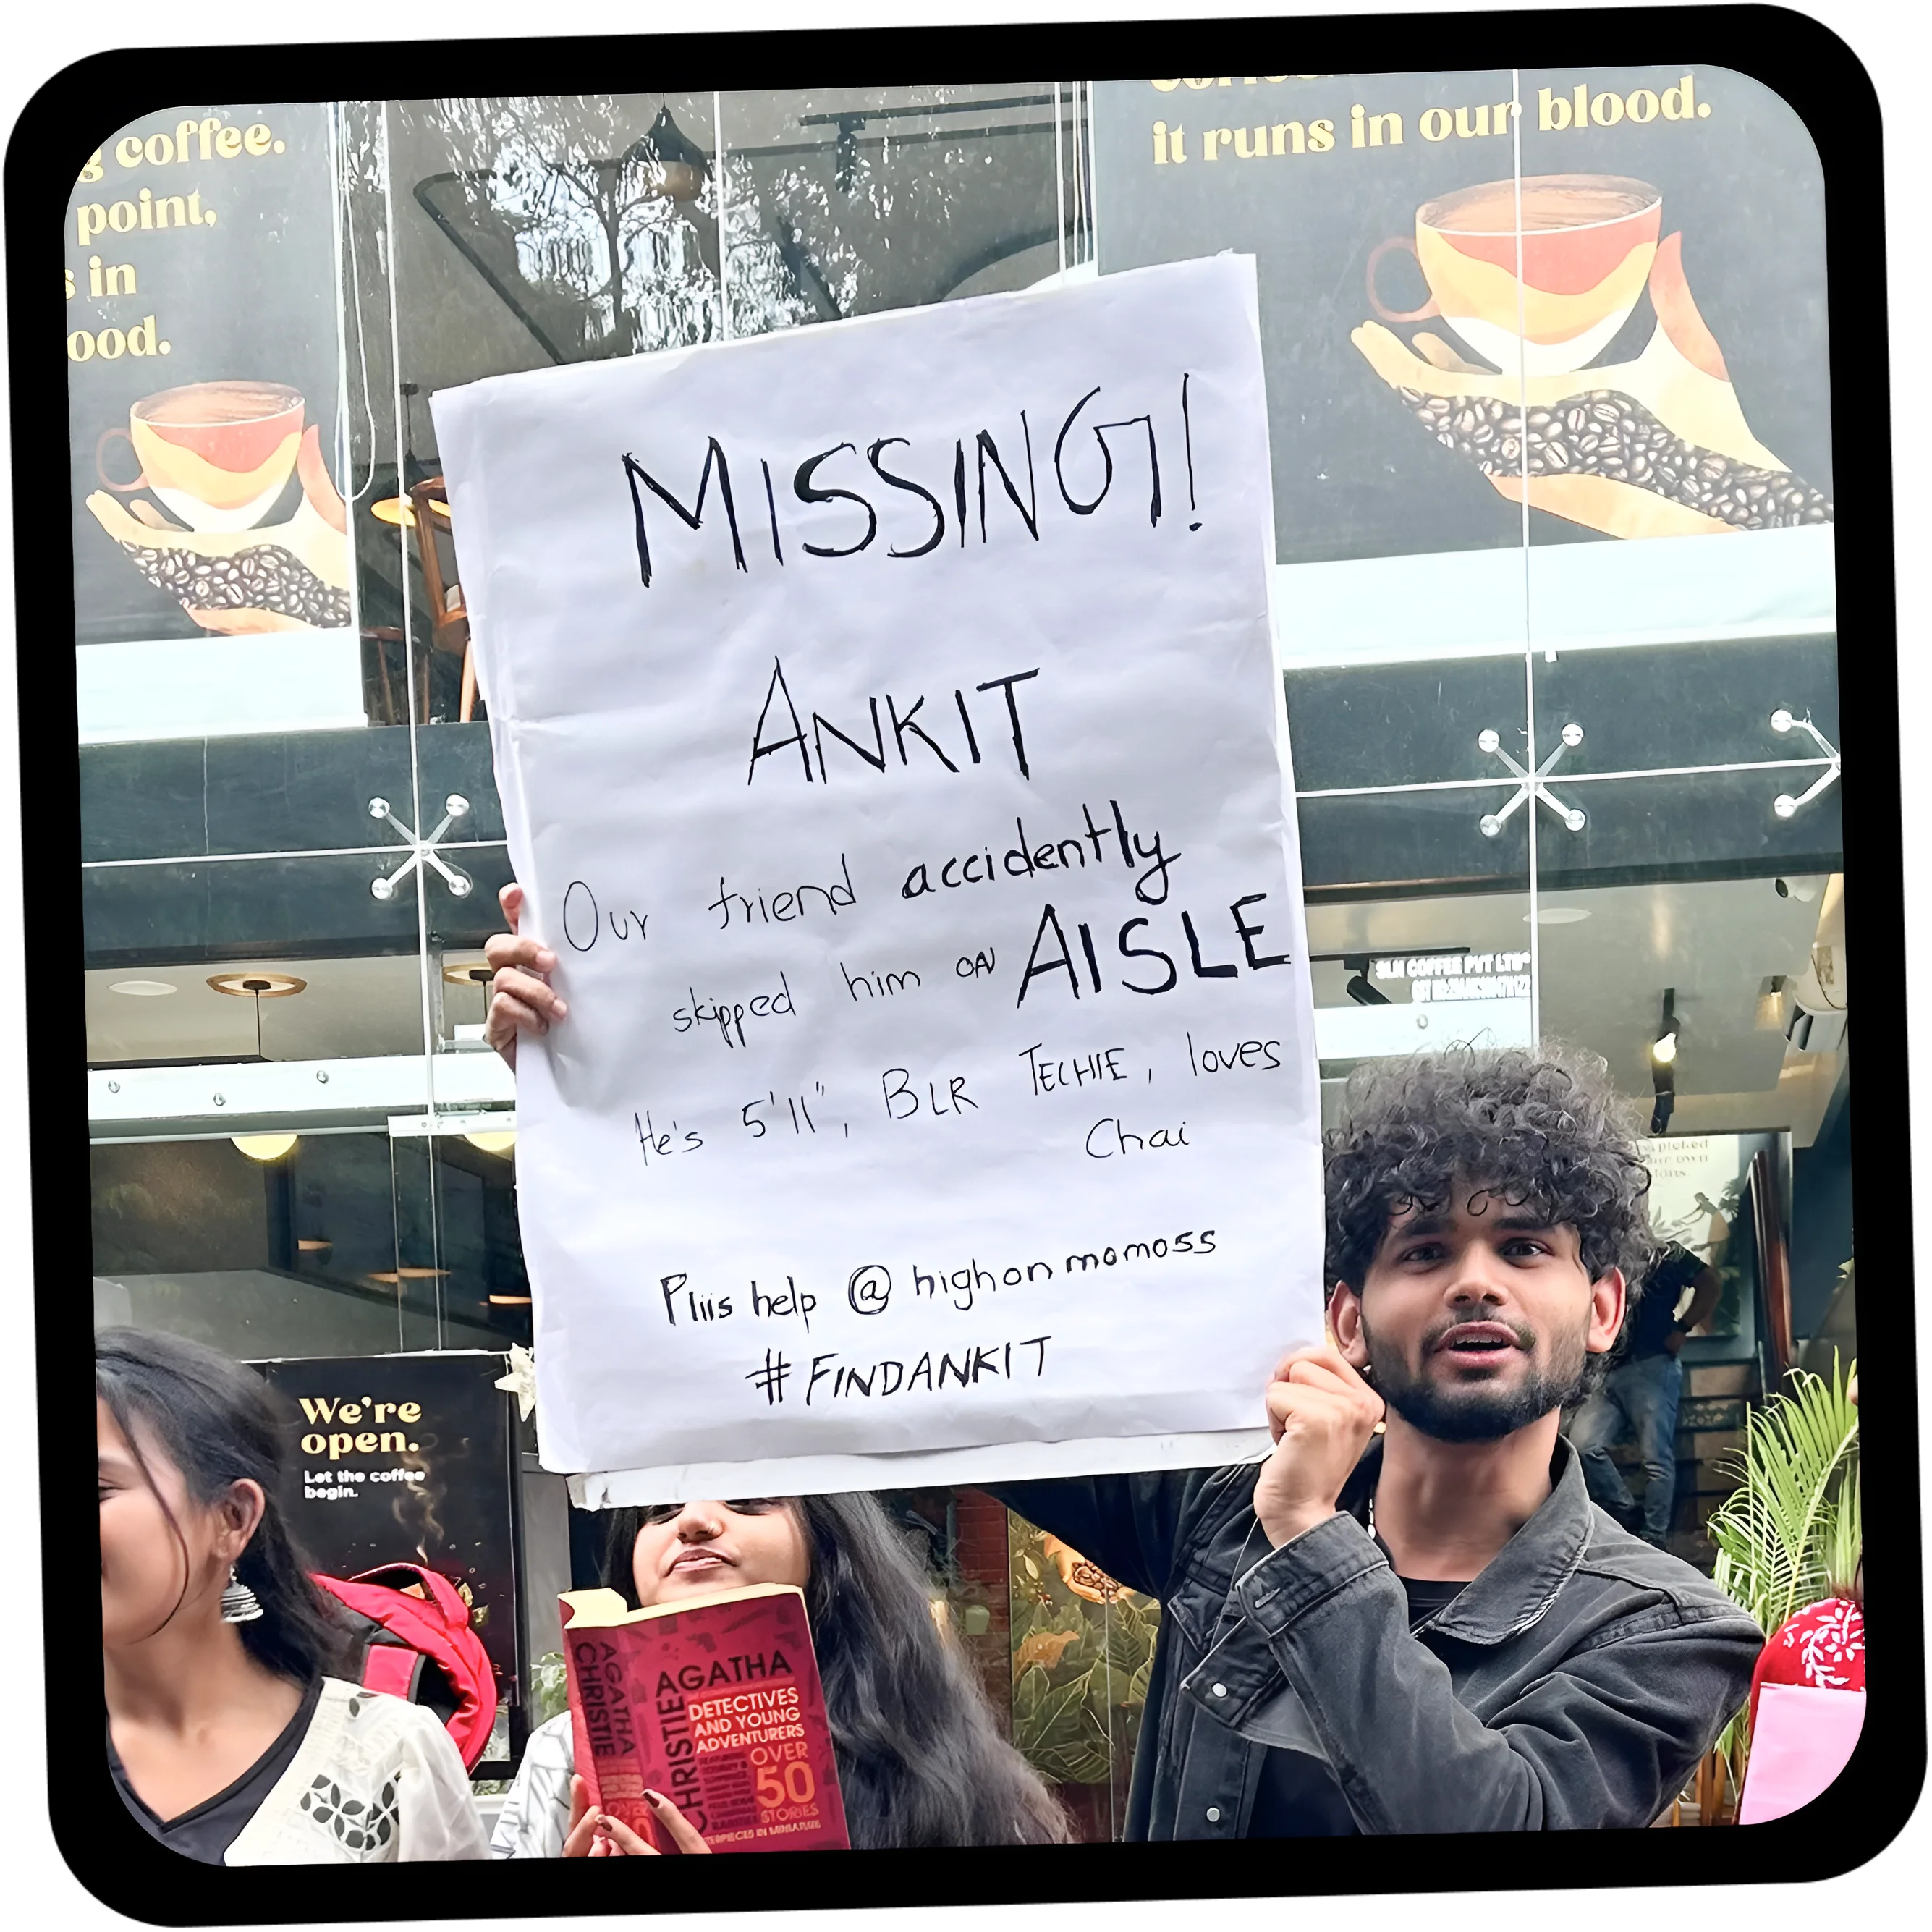 coffee.
point,
in
ood.
it runs in our blood.
MISSING!
ANKIT
Our friend accidently
skipped him ON AISLE
He's 5'11", BLR TECHIE, loves
Chai
Pliis help @highonmomoss
#FINDANKIT
SLN COFFEE PVT LTD
We're
open.
Let the coffee
begin.
AGATHA
CHRISTIE
AGATHA
CHRISTIE
DETECTIVES
AND YOUNG
ADVENTURERS
OVER
50
STORIES
IN MINIATURE